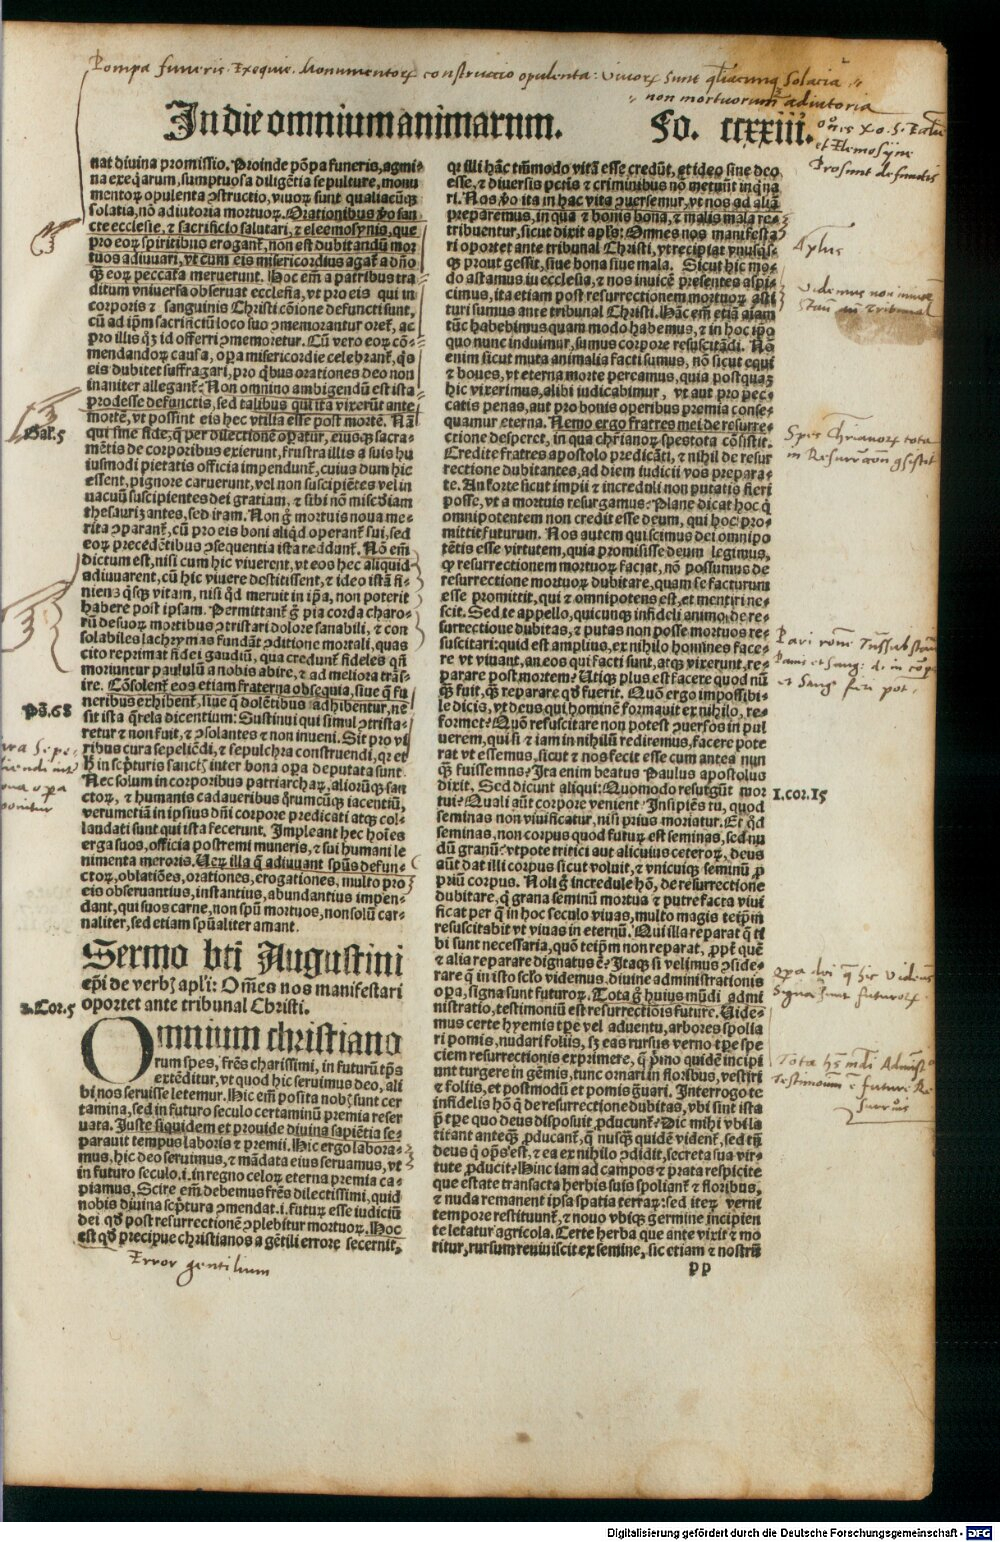 Pompa funeris. Exequie. Monumentorꝝ construccio opulenta: Viuorꝝ sunt qualiacunqꝫ Solacia
non mortuorum adiutoria
In die omnium animarum. Fo. ccxxiii.
nat diuina promissio. Proinde põpa funeris, agmi⸗
na exeq̃arum, sumptuosa diligẽtia sepulture, monu
mentorꝝ opulenta ↄstructio, viuorꝝ sunt qualiacũqꝫ
solatia, nõ adiutoria mortuorꝝ. Orationibus ꝟo san⸗
cte ecclesie, ⁊ sacrificio salutari, ⁊ eleemosynis, que
pro eorꝝ spiritibus erogant᷑, non est dubitandũ mor
tuos adiuuari, vt cum eis misericordius agat᷑ a dño
qꝫ eorꝝ peccata meruerunt. Hoc em̃ a patribus tra⸗
ditum vniuersa obseruat ecclesia, vt pro eis qui in
corporis ⁊ sanguinis Christi cõione defuncti sunt,
cũ ad ip̃m sacrificiũ loco suo ↄmemorantur oret᷑, ac
pro illis qꝫ id offerri ↄmemoretur. Cũ vero eorꝝ cõ⸗
mendandorꝝ causa, oꝑa misericordie celebrant᷑, q̃s
eis dubitet suffragari, pro q̃bus orationes deo non
inaniter allegant᷑? Non omnino ambigendũ est ista
prodesse defunctis, sed talibus qui ita vixerũt ante
mortẽ, vt possint eis hec vtilia esse post mortẽ. Nã
Gal. 5
qui sine fide, q̃ per dilectionẽ oꝑatur, eiusqꝫ sacra⸗
mẽtis de corporibus exierunt, frustra illis a suis hu
iusmodi pietatis officia impendunt᷑, cuius dum hic
essent, pignore caruerunt, vel non suscipiẽtes vel in
vacuũ suscipientes dei gratiam, ⁊ sibi nõ miscd̃iam
thesaurizantes, sed iram. Non g̃ mortuis noua me⸗
rita ↄparant᷑, cũ pro eis boni aliqd̃ operant᷑ sui, sed
eorꝝ precedẽtibus ↄsequentia ista reddant᷑. Nõ em̃
dictum est, nisi cum hic viuerent, vt eos hec aliquid
adiuuarent, cũ hic viuere destitissent, ⁊ ideo istã fi⸗
nienꝫ qͥsqꝫ vitam, nisi qd̃ meruit in ip̃a, non poterit
habere post ipsam. Permittant᷑ g̃ pia corda charo⸗
rũ de suorꝝ mortibus ↄtristari dolore sanabili, ⁊ con
solabiles lachrymas fundãt ↄditione mortali, quas
cito reprimat fidei gaudiũ, qua credunt᷑ fideles qñ
moriuntur paululũ a nobis abire, ⁊ ad meliora trãs⸗
ire. Cõsolent᷑ eos etiam fraterna obsequia, siue q̃ fu
neribus exhibent᷑, siue q̃ dolẽtibus adhibentur, ne
Ps. 68
sit ista q̃rela dicentium: Sustinui qui simul ↄtrista⸗
retur ⁊ non fuit, ⁊ ↄsolantes ⁊ non inueni. Sit pro vi
ribus cura sepeliẽdi, ⁊ sepulchra construendi, qꝛ et
h̃ in scp̃turis sanctꝭ inter bona oꝑa deputata sunt.
Nec solum in corporibus patriarchaꝝ, aliorũqꝫ san
ctorꝝ, ⁊ humanis cadaueribus q̃rumcũqꝫ iacentiũ,
verumetiã in ipsius dñi corpore predicati atqꝫ col⸗
laudati sunt qui ista fecerunt. Impleant hec hoĩes
erga suos, officia postremi muneris, ⁊ sui humani le
nimenta meroris. Verꝝ illa q̃ adiuuant spũs defun⸗
ctorꝝ, oblatiões, orationes, erogationes, multo pro
eis obseruantius, instantius, abundantius impen⸗
dant, qui suos carne, non spũ mortuos, non solũ car⸗
naliter, sed etiam spũaliter amant.
Sermo bt̃i Augustini
ep̃i de verbꝭ apl̃i: Om̃es nos manifestari
2. Cor. 5
oportet ante tribunal Christi.
Omnium christiano
rum spes, fr̃es charissimi, in futurũ tp̃s
extẽditur, vt quod hic seruimus deo, ali
bi nos seruisse letemur. Hic em̃ posita nobꝭ sunt cer
tamina, sed in futuro seculo certaminũ premia reser
uata. Iuste siquidem et prouide diuina sapiẽtia se⸗
parauit tempus laboris ⁊ premii. Hic ergo labora⸗
mus, hic deo seruimus, ⁊ mãdata eius seruamus, vt
in futuro seculo .i. in regno celorꝝ eterna premia ca⸗
piamus, Scire em̃ debemus fr̃es dilectissimi, quid
nobis diuina scp̃tura ↄmendat .i. futurꝝ esse iudiciũ
dei qd̃ post resurrectionẽ ↄplebitur mortuorꝝ. Hoc
est qd̃ precipue christianos a gẽtili errore secernit,
Error gentilium
qꝛ illi hãc tm̃modo vitã esse credũt, et ideo sine deo
esse, ⁊ diuersis petiis ⁊ criminibus nõ metuũt inq̃na
ri. Nos ꝟo ita in hac vita ↄuersemur, vt nos ad aliã
preparemus, in qua ⁊ bonis bona, ⁊ malis mala re⸗
tribuentur, sicut dixit apl̃s: Omnes nos manifesta
ri oportet ante tribunal Christi, vt recipiat vnusqͥs⸗
qꝫ prout gessit, siue bona siue mala. Sicut hic mo⸗
do astamus in ecclesia, ⁊ nos inuicẽ presentes aspi⸗
cimus, ita etiam post resurrectionem mortuorꝝ asti
turi sumus ante tribunal Christi. Hãc em̃ etiã aĩam
tũc habebimus quam modo habemus, ⁊ in hoc ip̃o
quo nunc induimur, sumus corpore resuscitãdi. Nõ
enim sicut muta animalia facti sumus, nõ sicut equi
⁊ boues, vt eterna morte pereamus, quia postquaꝫ
hic vixerimus, alibi iudicabimur, vt aut pro pec⸗
catis penas, aut pro bonis operibus premia conse⸗
quamur eterna. Nemo ergo fratres mei de resurre⸗
ctione desperet, in qua chr̃ianorꝝ spes tota cõsistit.
Credite fratres apostolo predicãti, ⁊ nihil de resur
rectione dubitantes, ad diem iudicii vos prepara⸗
te. An forte sicut impii ⁊ increduli non putatis fieri
posse, vt a mortuis resurgamus? Plane dicat hoc q̃
omnipotentem non credit esse deum, qui hoc pro⸗
mittit futurum. Nos autem qui scimus dei omnipo
tẽtis esse virtutem, quia promisisse deum legimus,
ꝙ resurrectionem mortuorꝝ faciat, nõ possumus de
resurrectione mortuorꝝ dubitare, quam se facturum
esse promittit, qui ⁊ omnipotens est, et mentiri ne⸗
scit. Sed te appello, quicunqꝫ infideli animo de re⸗
surrectione dubitas, ⁊ putas non posse mortuos re⸗
suscitari: quid est amplius, ex nihilo homines face⸗
re vt viuant, an eos qui facti sunt, atqꝫ vixerunt, re⸗
parare post mortem? Utiqꝫ plus est facere quod nũ
qꝫ fuit, qꝫ reparare qd̃ fuerit. Quõ ergo impossibi⸗
le dicis, vt deus qui hominẽ formauit ex nihilo, re⸗
formet? Quõ resuscitare non potest ↄuersos in pul
uerem, qui si ⁊ iam in nihilũ rediremus, facere pote
rat vt essemus, sicut ⁊ nos fecit esse cum antea nun
qꝫ fuissemus? Ita enim beatus Paulus apostolus
dixit. Sed dicunt aliqui: Quomodo resurgũt mor
1. cor. 15
tui? Quali aũt corpore venient? Insipiẽs tu, quod
seminas non viuificatur, nisi prius moriatur. Et qd̃
seminas, non corpus quod futurꝝ est seminas, sed nu
dũ granũ: vtpote tritici aut alicuius ceterorꝝ, deus
aũt dat illi corpus sicut voluit, ⁊ vnicuiqꝫ seminũ ꝓ
priũ corpus. Noli g̃ incredule hõ, de resurrectione
dubitare, q̃ grana seminũ mortua ⁊ putrefacta viui
ficat per q̃ in hoc seculo viuas, multo magis teip̃m
resuscitabit vt viuas in eternũ. Qui illa reparat q̃ ti
bi sunt necessaria, quõ teip̃m non reparat, ꝓpt̃ quẽ
⁊ alia reparare dignatus ẽ? Itaqꝫ si velimus ↄside⸗
rare q̃ in isto sclo videmus, diuine administrationis
opa, signa sunt futurorꝝ. Tota g̃ huius mũdi admi
nistratio, testimoniũ est resurrectiõis future. Uide⸗
mus certe hyemis tp̃e vel aduentu, arbores spolia
ri pomis, nudari foliis, sꝫ eas rursus verno tp̃e spe
ciem resurrectionis exprimere, q̃ p̃mo quidẽ incipi
unt turgere in gẽmis, tunc ornari in floribus, vestiri
⁊ foliis, et postmodũ et pomis g̃uari. Interrogo te
infidelis hõ q̃ de resurrectione dubitas, vbi sint ista
q̃ tp̃e quo deus disposuit ꝓducunt᷑? Dic mihi vbi la
titant anteqꝫ ꝓducant᷑, q̃ nusqꝫ quidẽ vident᷑, sed tñ
deus q̃ op̃s est, ⁊ ea ex nihilo ↄdidit, secreta sua vir⸗
tute ꝓducit? Hinc iam ad campos ⁊ prata respicite
que estate transacta herbis suis spoliant᷑ ⁊ floribus,
⁊ nuda remanent ipsa spatia terrarꝝ: sed iterꝝ verni
tempore restituunt᷑, ⁊ nouo vbiqꝫ germine incipien
te letatur agricola. Certe herba que ante vixit ⁊ mo
ritur, rursum reuiuiscit ex semine, sic etiam ⁊ nostrũ
pp
et Elemosyne
Prosunt defunctis
Aplus
Videmus non
Spes Chrianorꝝ tota
in Resurrccon ↄsistit
opa dei q̃ hic Videmus
Signa sunt futurorꝝ
Tota hꝰ mũdi Adminst
Testimonium ẽ future Re
surrectionis
Digitalisierung gefördert durch die Deutsche Forschungsgemeinschaft - DFG